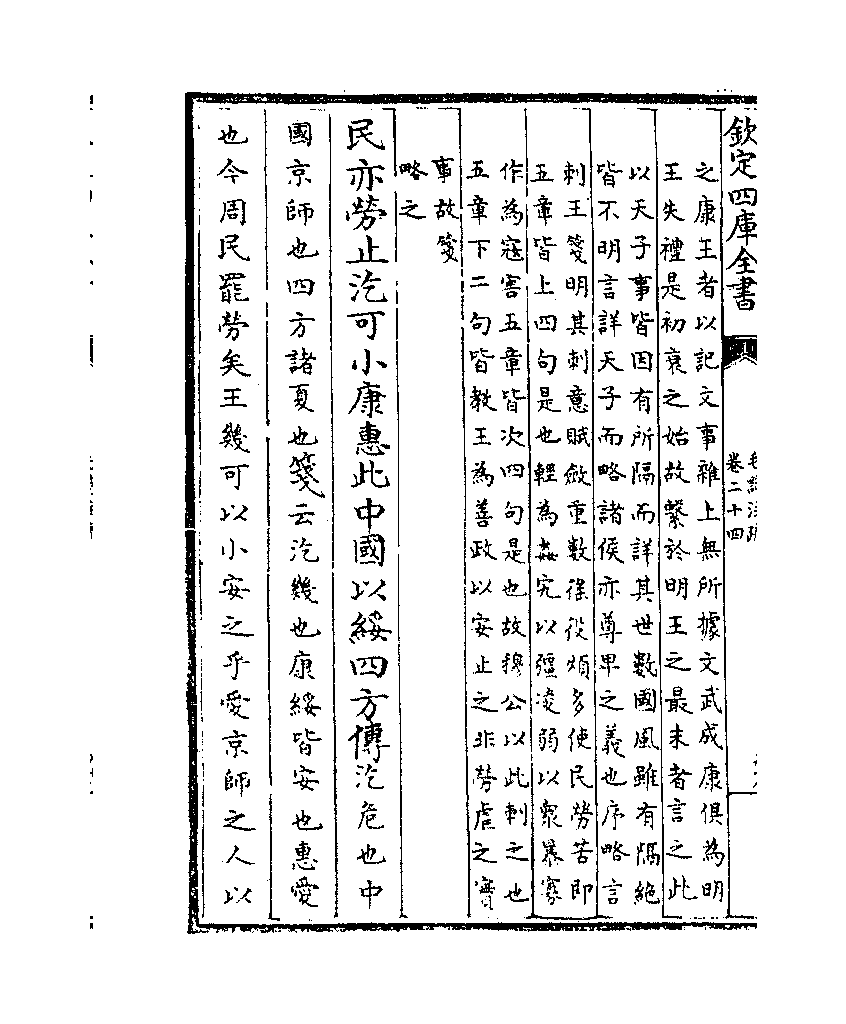 欽定四庫全書
卷二十四
之康王者以記文事雜上無所據文武成康俱為明
王失禮是初衰之始故繫於明王之最末者言之此
以天子事皆因有所隔而詳其世數國風雖有隔絶
皆不明言詳天子而略諸侯亦尊卑之義也序略言
刺王箋明其刺意賦斂重數徭役煩多使民勞苦即
五章皆上四句是也輕為姦宄以彊凌弱以衆暴寡
作為寇害五章皆次四句是也故穆公以此刺之也
五章下二句皆教王為善政以安止之非勞虐之實
事故箋
略之
民亦勞止汔可小康惠此中國以綏四方傳汔危也中
國京師也四方諸夏也箋云汔幾也康綏皆安也惠愛
也今周民罷勞矣王幾可以小安之乎愛京師之人以